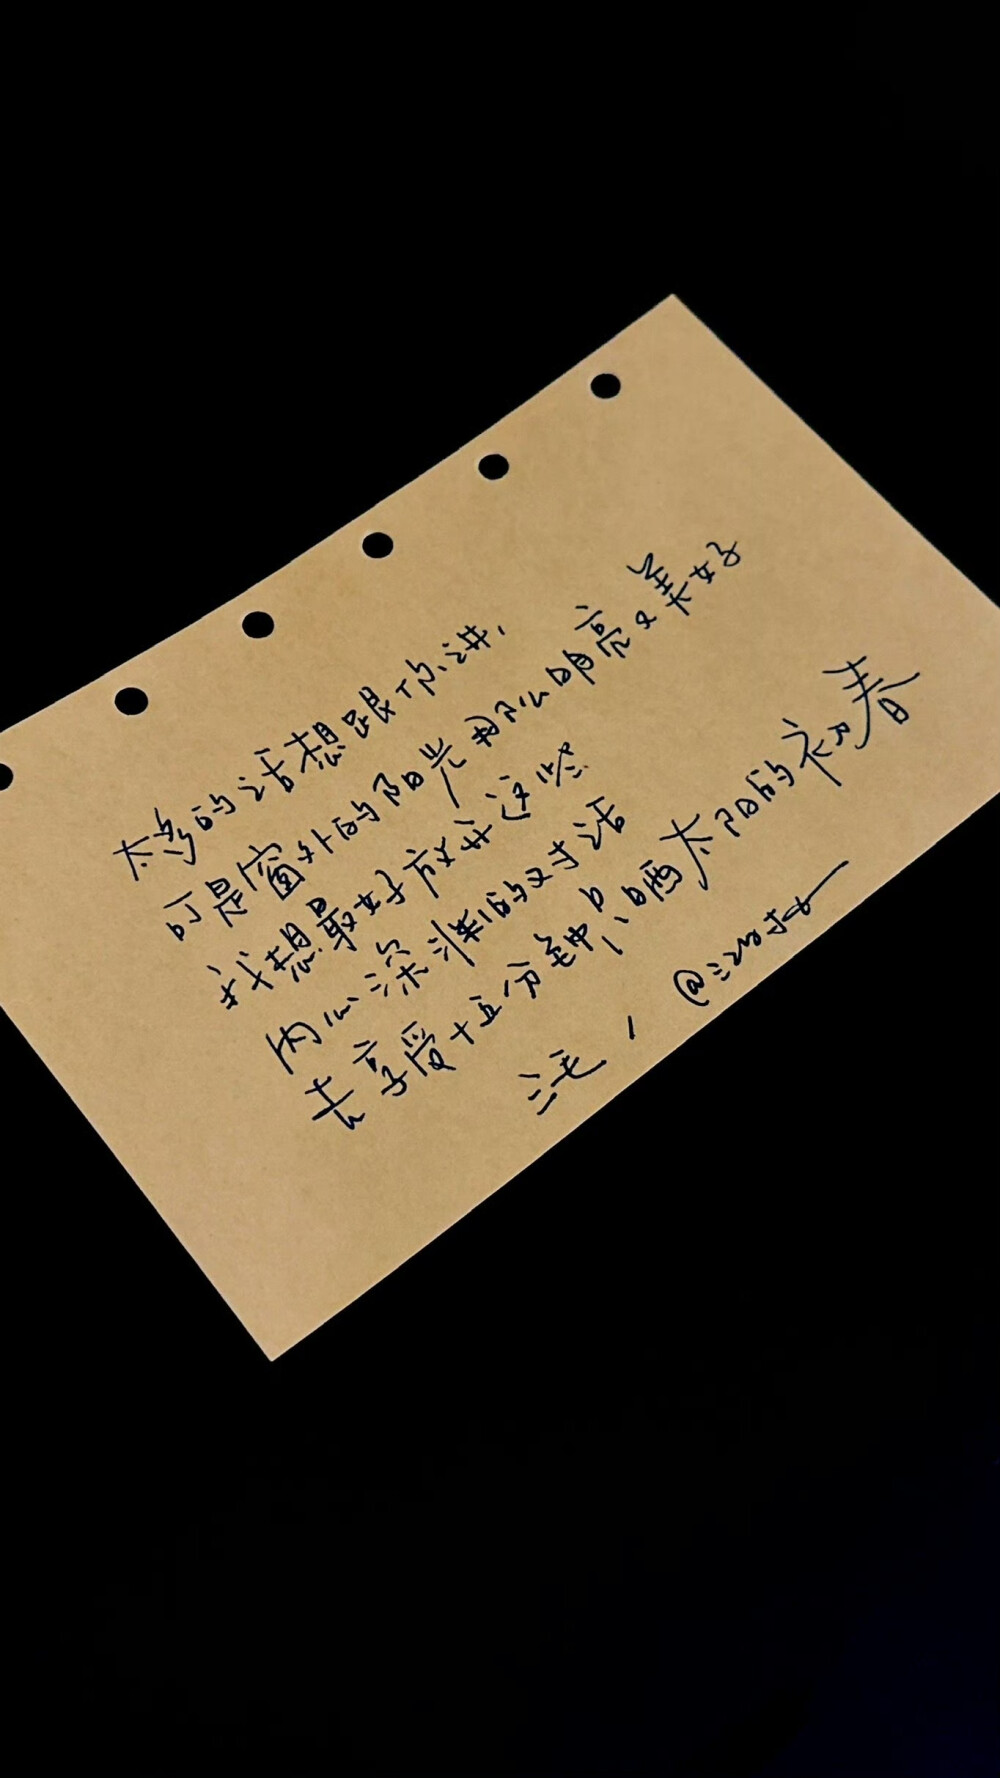 太多的话想跟你讲，
可是窗外的阳光那么明亮又美好
我想最好放弃这些
内心深渊的对话
去享受十五分钟、晒太阳的初春
三毛，